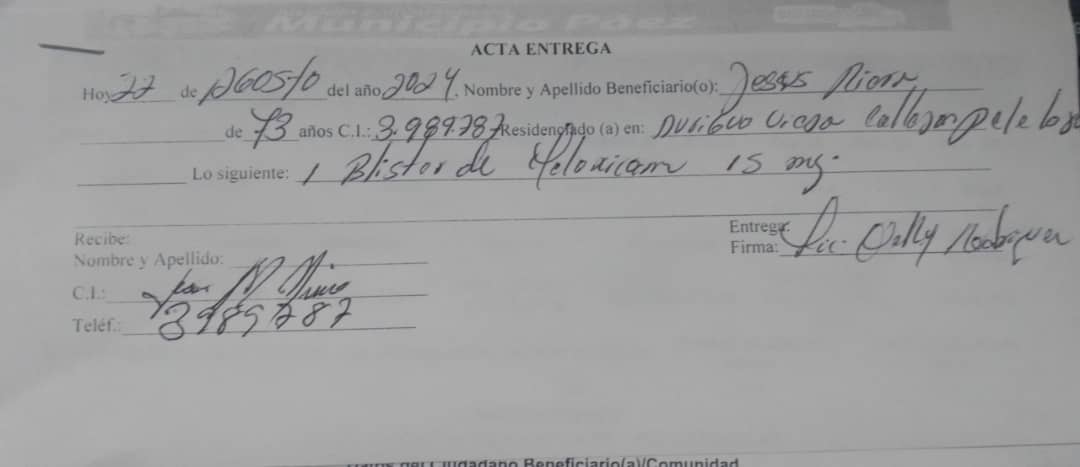 Municipio Páez
ACTA ENTREGA
Hoy 22 de Agosto del año 2024, Nombre y Apellido Beneficiario(o): Jesus
de 73 años C.I.: 3.989.787 Residenciado (a) en: Durigua Vieja Callejon
Lo siguiente: 1 Blister de Meloxicam 15 mg.
Recibe:
Nombre y Apellido:
C.I.:
Teléf.: 3989787
Entrega:
Firma: Lic. Rodriguez
Beneficiario(a)/Comunidad